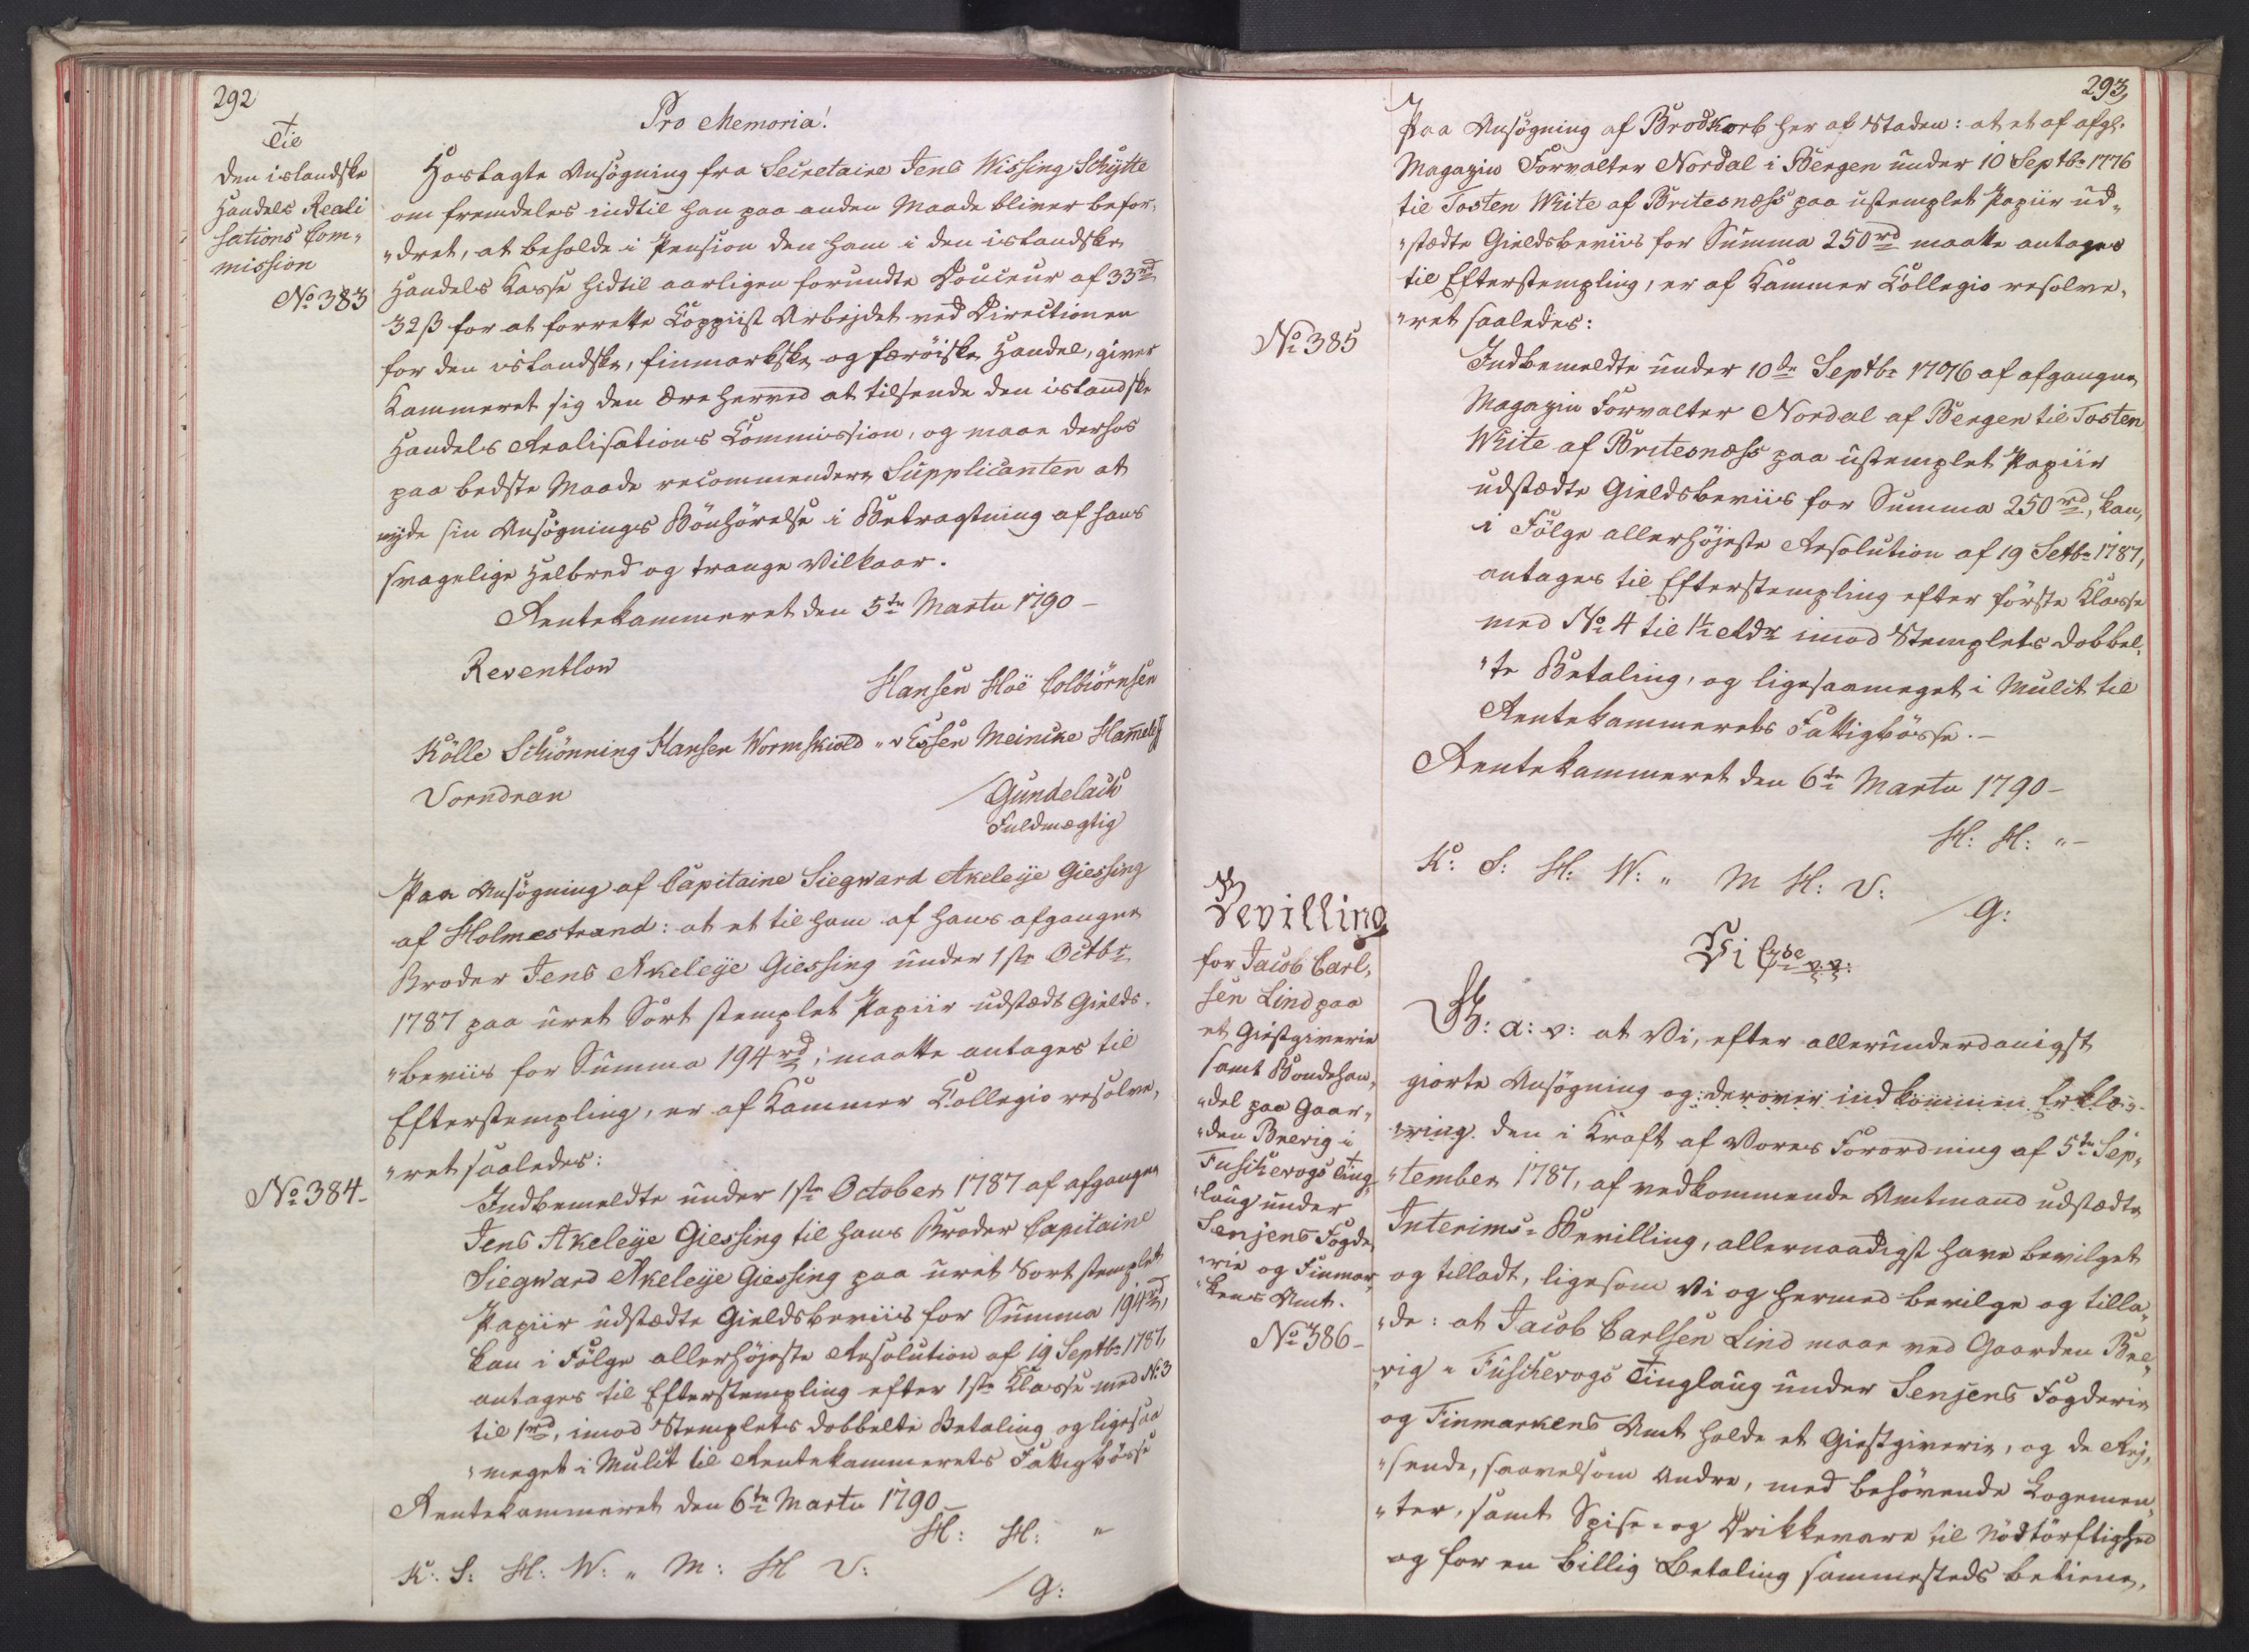 292
Til
den islandske
Handels Reali
sations Com„
mission
No 383
Pro Memoria!
Hoslagte Ansögning fra Secretaire Jens Wissing Schytte
om fremdeles indtil han paa anden Maade bliver befor„
„dret, at beholde i Pension den ham i den islandske
Handels Kasse hidtil aarligen forundte Douceur af 33 rd
32 ß for at forrette Coppiist Arbejdet ved Directionen
for den islandske, finmarkske og færöiske Handel, giver
Kammeret sig den Ære herved at tilsende den islandske
Handels Realisations Commission, og maae derhos
paa bedste Maade recommendere Supplicanten at
nyde sin Ansögnings Bönhörelse i Betragtning af hans
svagelige Helbred og trange Vilkaar.
Rentekammeret den 5te Martii 1790 –
Reventlow
Hansen Hoë Colbiörnsen
Kölle Schiönning Hansen Wormskiold „ v Essen Meincke Hammeleff
Vorndran
/Gundelach
Fuldmægtig
Paa Ansögning af Capitaine Siegward Akeleye Giessing
af Holmestrand: at et til ham af hans afgangne
Broder Jens Akeleye Giessing under 1ste Octbr
1787 paa uret Sort stemplet Papiir udstædt Gields„
„beviis for Summa 194 rd, maatte antages til
Efterstempling, er af Kammer Collegio resolve„
„ret saaledes:
No 384 –
Indbemeldte under 1ste October 1787 af afgangne
Jens Akeleye Giessing til hans Broder Capitaine
Siegward Akeleye Giessing paa uret Sort stemplet
Papiir udstædte Gieldsbeviis for Summa 194 rd,
kan i Fölge allerhöjeste Resolution af 19 Septbr 1787,
antages til Efterstempling efter 1ste Klasse med No 3
til 1 rd, imod Stemplets dobbelte Betaling og ligesaa
„meget i Mulct til Rentekammerets Fattigbösse
Rentekammeret den 6te Martii 1790 –
H: H: „
K: S: H: W: „ M: H V:
/G:
293
Paa Ansögning af Brodkorb her af Staden: at et af afg.
Magazin Forvalter Nordal i Bergen under 10 Septbr 1776
til Tosten White af Britesnæss paa ustemplet Papiir ud„
„stædte Gieldsbeviis for Summa 250 rd maatte antages
til Efterstempling, er af Kammer Collegio resolve„
„ret saaledes:
No 385
Indbemeldte under 10de Septbr 1776 af afgangne
Magazin Forvalter Nordal af Bergen til Tosten
White af Britesnæss paa ustemplet Papiir
udstædte Gieldsbeviis for Summa 250 rd, kan,
i Fölge allerhöjeste Resolution af 19 Setbr 1787,
antages til Efterstempling efter förste Klasse
med No 4 til 1½ Rdr imod Stemplets dobbel„
„te Betaling, og ligesaameget i Mulct til
Rentekammerets Fattigbösse. –
Rentekammeret den 6te Martii 1790 –
H: H: „ –
K: S: H: W: „ M H: V:
/G:
Vi C 7de v. v:
Bevilling
for Jacob Carl„
sen Lind paa
et Giestgiverie
samt Bondehan„
„del paa Gaar„
„den Brevig i
Fuschevogs Ting
„laug under
Senjens Fogde„
„rie og Finmar„
„kens Amt.
No 386 –
G: a: v: at Vi, efter allerunderdanigst
giorte Ansögning og derover indkommen Erklæ„
„ring. den i Kraft af Vores Forordning af 5te Sep„
„tember 1787, af vedkommende Amtmand udstædte
Interims-Bevilling, allernaadigst have bevilget
og tilladt, ligesom Vi og hermed bevilge og tilla„
„de: at Jacob Carlsen Lind maae ved Gaarden Bre„
„vig i Fuschevogs Tinglaug under Senjens Fogderie
og Finmarkens Amt holde et Giestgiverie, og de Rej„
„sende, saavelsom Andre, med behövende Logemen„
„ter, samt Spise- og Drikkevare til Nödtörftighed
og for en billig Betaling sammesteds betiene,